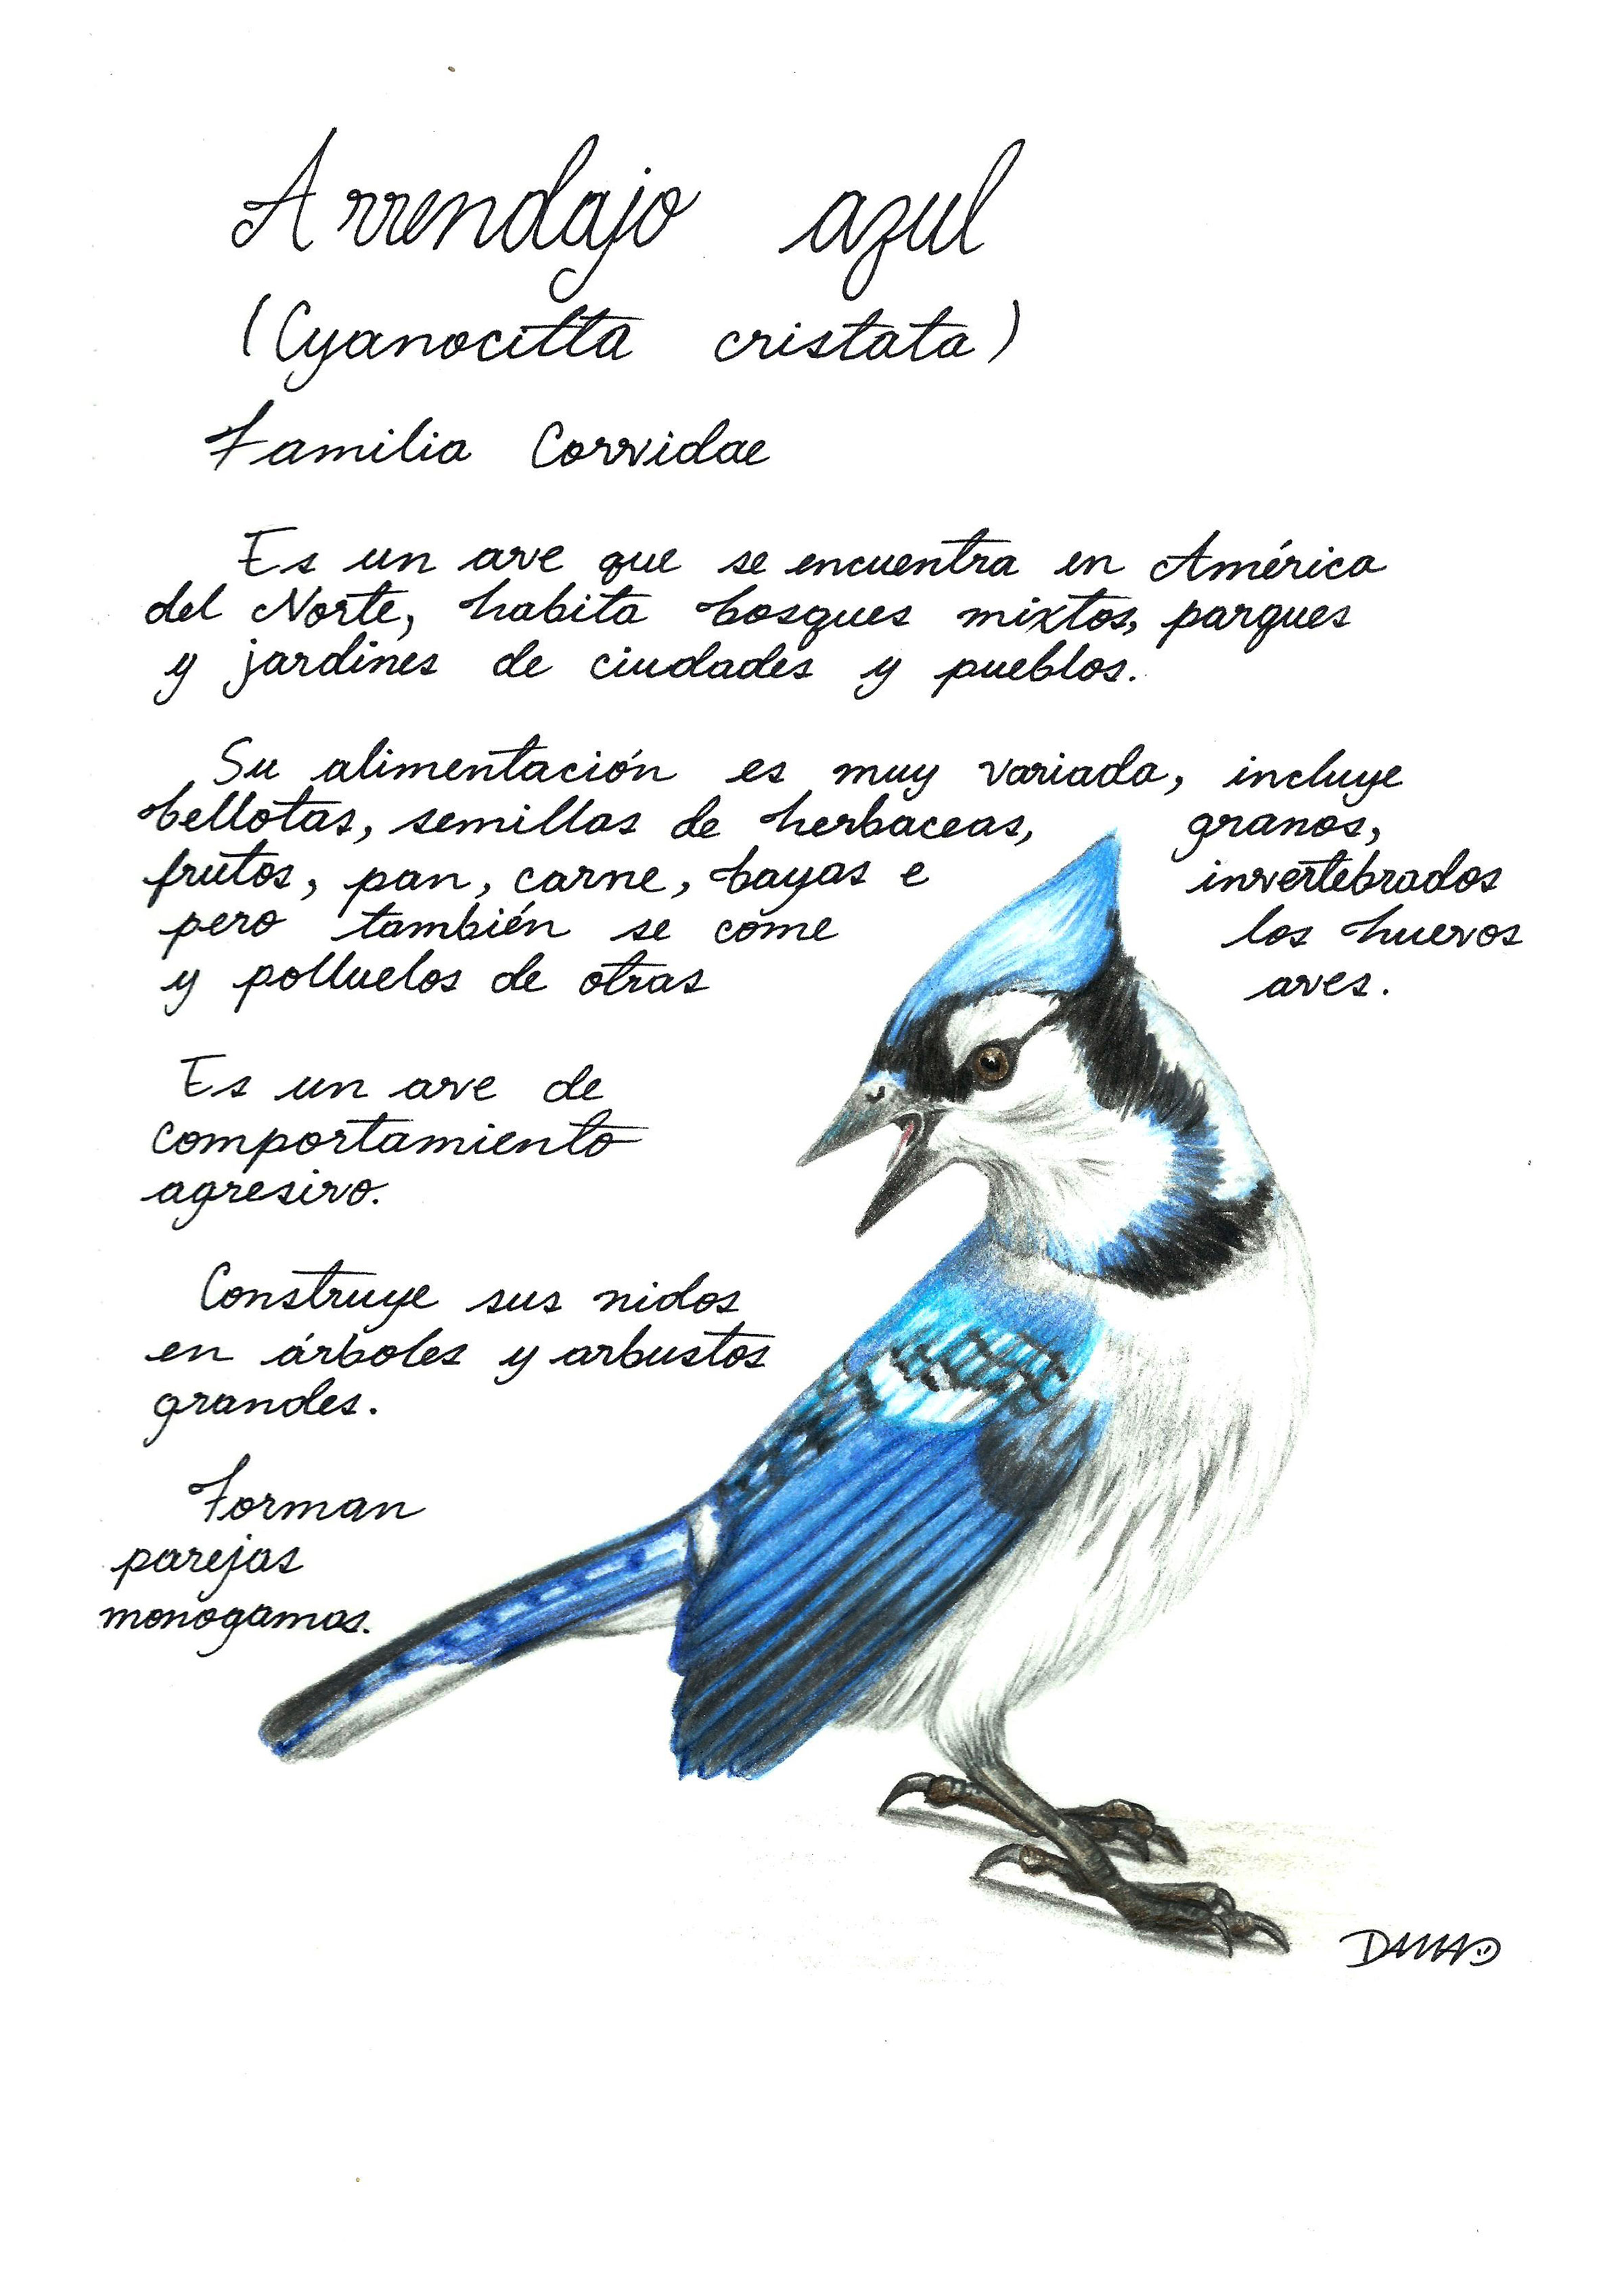 Arrendajo azul
(Cyanocitta cristata)
Familia Corvidae
Es un ave que se encuentra en América
del Norte, habita bosques mixtos, parques
y jardines de ciudades y pueblos.
Su alimentación es muy variada, incluye
bellotas, semillas de herbaceas, granos,
frutos, pan, carne, bayas e invertebrados
pero también se come los huevos
y polluelos de otras aves.
Es un ave de
comportamiento
agresivo.
Construye sus nidos
en árboles y arbustos
grandes.
Forman
parejas
monógamas.